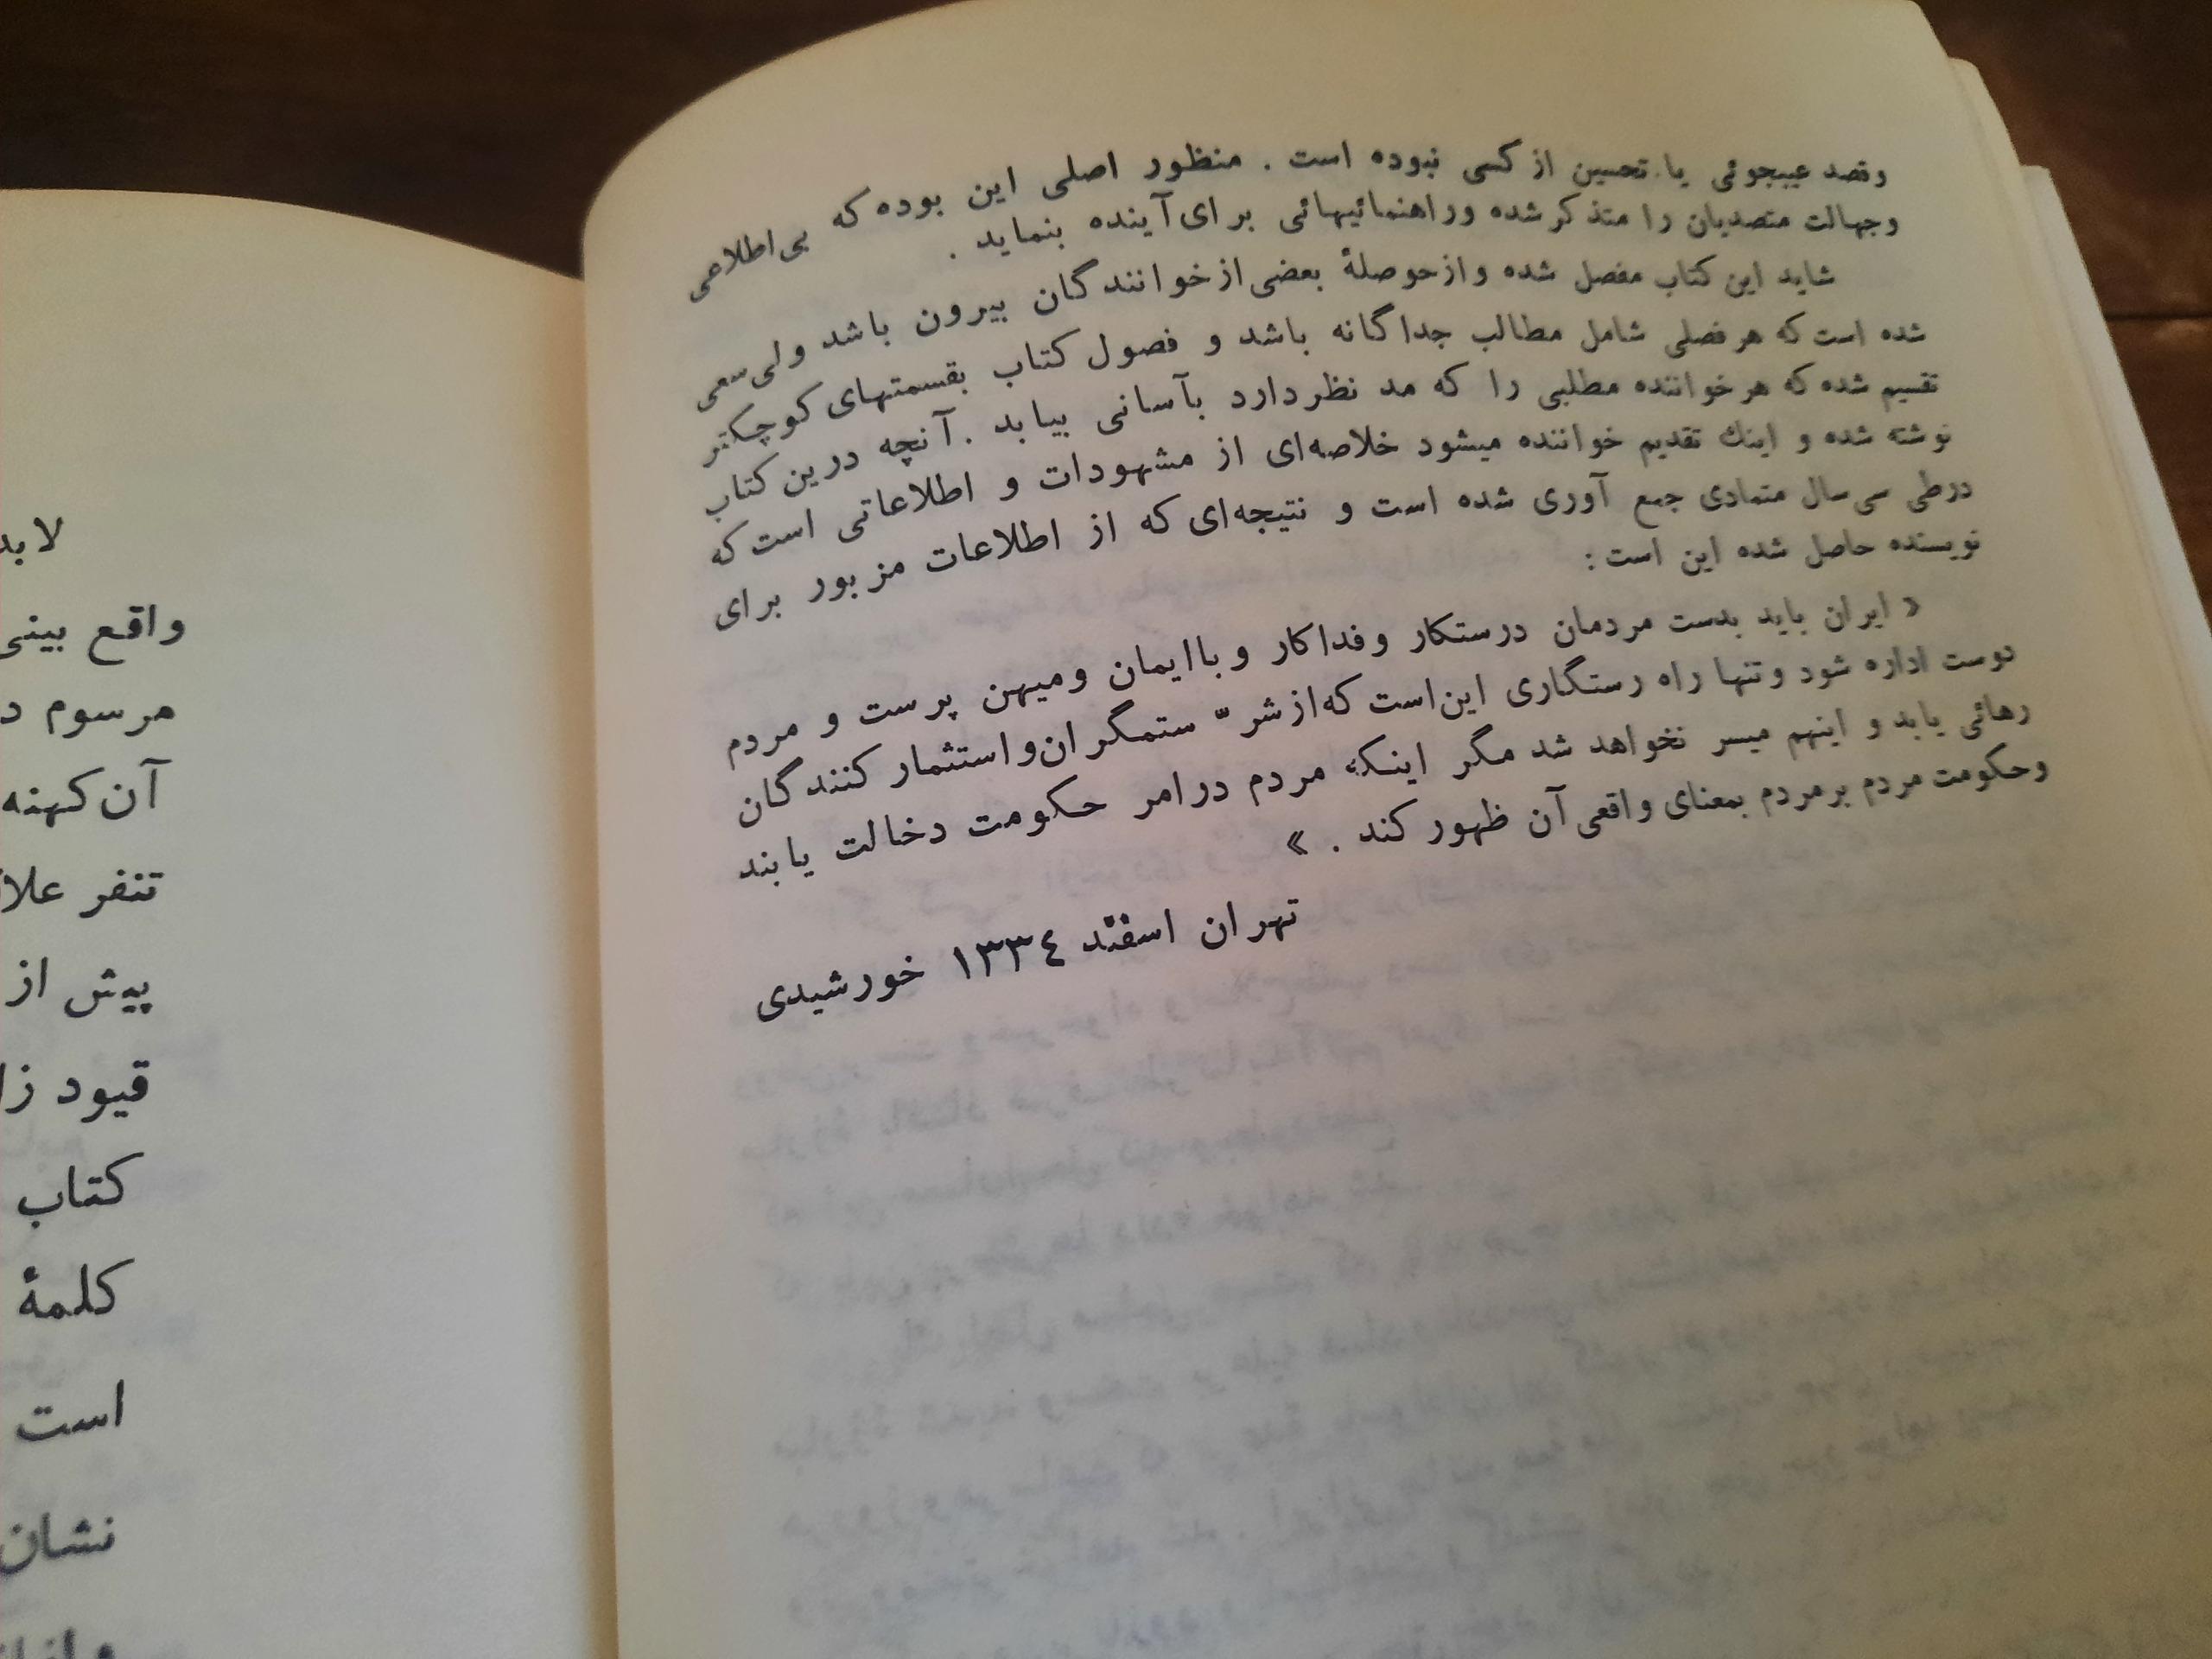 وقصد عیبجوئی یا تحسین از کسی نبوده است . منظور اصلی این بوده که بی‌اطلاعی
وجهالت متصدیان را متذکر شده وراهنمائیهائی برای آینده بنماید .
شاید این کتاب مفصل شده وازحوصلهٔ بعضی ازخوانندگان بیرون باشد ولی سعی
شده است که هرفصلی شامل مطالب جداگانه باشد و فصول کتاب بقسمتهای کوچکتر
تقسیم شده که هرخواننده مطلبی را که مد نظردارد بآسانی بیابد . آنچه درین کتاب
نوشته شده و اینك تقدیم خواننده میشود خلاصه‌ای از مشهودات و اطلاعاتی است که
درطی سی‌سال متمادی جمع آوری شده است و نتیجه‌ای که از اطلاعات مزبور برای
نویسنده حاصل شده این است :
« ایران باید بدست مردمان درستکار وفداکار وباایمان ومیهن پرست و مردم
دوست اداره شود وتنها راه رستگاری این‌است که‌ازشرّ ستمگران‌واستثمار کنندگان
رهائی یابد و اینهم میسر نخواهد شد مگر اینکه مردم درامر حکومت دخالت یابند
وحکومت مردم برمردم بمعنای واقعی آن ظهور کند . »
تهران اسفند ١٣٣٤ خورشیدی
واقع بینی
مرسوم
آن‌کهنه
تنفر
پیش از
قیود
کتاب
کلمهٔ
است
نشان